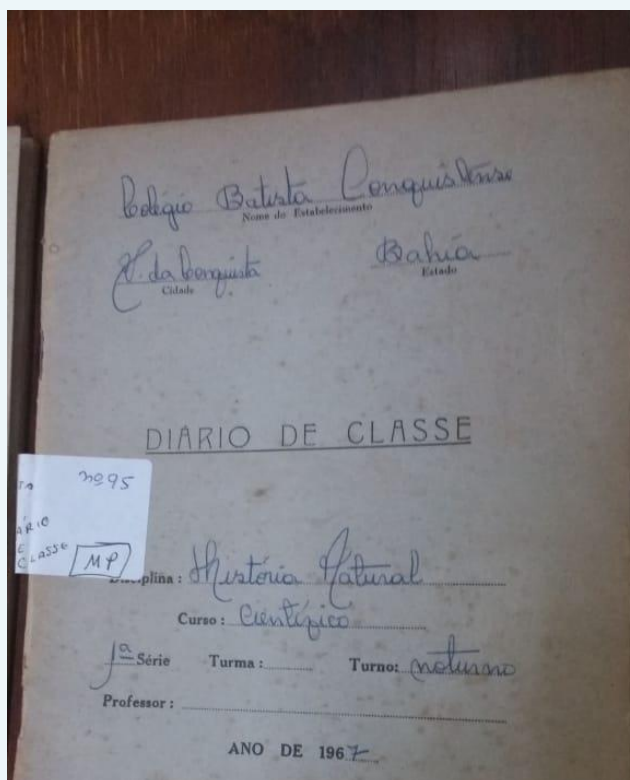 Colégio Batista Conquistense
Nome do Estabelecimento
V. da Conquista Bahia
Cidade Estado
DIÁRIO DE CLASSE
nº 95
ÁRIO
E
CLASSE
MP
Disciplina: História Natural
Curso: Científico
1ª Série Turma: Turno: noturno
Professor:
ANO DE 1967